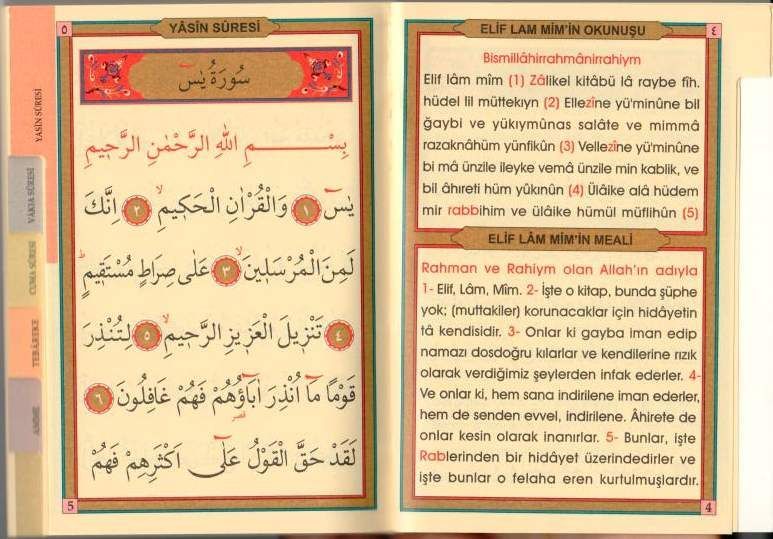 ٥
YÂSÎN SÛRESİ
سُورَةُ يٰسٓ
بِسْــــــمِ اللّٰهِ الرَّحْمٰنِ الرَّحٖيمِ
يٰسٓ ﴿١﴾ وَالْقُرْاٰنِ الْحَكٖيمِۙ ﴿٢﴾ اِنَّكَ
لَمِنَ الْمُرْسَلٖينَۙ ﴿٣﴾ عَلٰى صِرَاطٍ مُسْتَقٖيمٍؕ
﴿٤﴾ تَنْزٖيلَ الْعَزٖيزِ الرَّحٖيمِۙ ﴿٥﴾ لِتُنْذِرَ
قَوْمًا مَٓا اُنْذِرَ اٰبَٓاؤُ۬هُمْ فَهُمْ غَافِلُونَ ﴿٦﴾
لَقَدْ حَقَّ الْقَوْلُ عَلٰٓى اَكْثَرِهِمْ فَهُمْ
5
YASİN SÛRESİ
VAKIA SÛRESİ
CUMA SÛRESİ
TEBAREKE
AMME
٤
ELİF LAM MİM’İN OKUNUŞU
Bismillâhirrahmânirrahiym
Elif lâm mîm (1) Zâlikel kitâbü lâ raybe fîh.
hüdel lil müttekıyn (2) Ellezîne yü'minûne bil
ğaybi ve yükıymûnas salâte ve mimmâ
razaknâhüm yünfikûn (3) Vellezîne yü'minûne
bi mâ ünzile ileyke vemâ ünzile min kablik, ve
bil âhıreti hüm yûkınûn (4) Ülâike alâ hüdem
mir rabbihim ve ülâike hümül müflihûn (5)
ELİF LÂM MİM’İN MEALİ
Rahman ve Rahiym olan Allah'ın adıyla
1- Elif, Lâm, Mîm. 2- İşte o kitap, bunda şüphe
yok; (muttakiler) korunacaklar için hidâyetin
tâ kendisidir. 3- Onlar ki gayba iman edip
namazı dosdoğru kılarlar ve kendilerine rızık
olarak verdiğimiz şeylerden infak ederler. 4-
Ve onlar ki, hem sana indirilene iman ederler,
hem de senden evvel, indirilene. Âhirete de
onlar kesin olarak inanırlar. 5- Bunlar, işte
Rablerinden bir hidâyet üzerindedirler ve
işte bunlar o felaha eren kurtulmuşlardır.
4